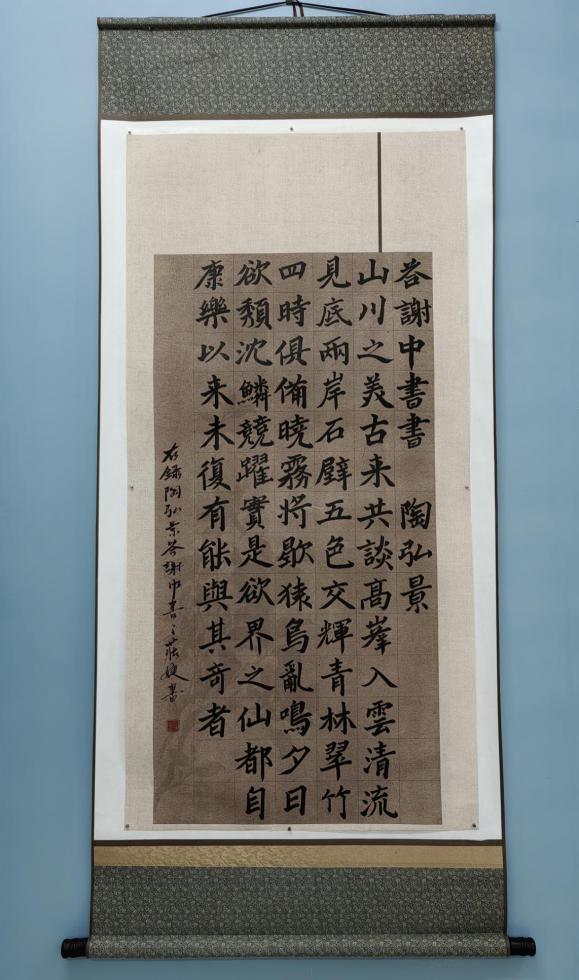 荅謝中書書 陶弘景
山川之美古来共談髙峯入雲清流
見底兩岸石壁五色交輝青林翠竹
四時俱備曉霧将歇猿鳥亂鳴夕日
欲頹沈鱗競躍實是欲界之仙都自
康樂以来未復有能與其奇者
右錄陶弘景荅謝中書々莊書